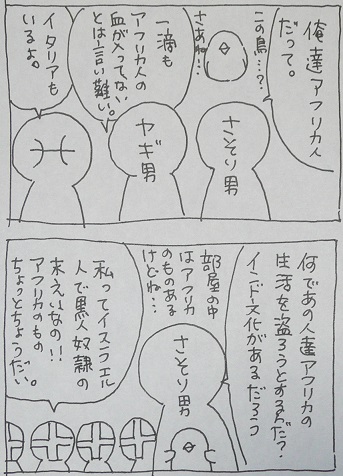 俺達アフリカ人
だって。
この鳥…?
さあね!!
さそり男
一滴も
アフリカ人の
血が入ってない
とは言い難い。
ヤギ男
イタリアも
いるよ。
何であの人達アフリカの
生活を盗ろうとするんだっ?
インドー文化があるだろう
部屋の中
はアフリカ
のものある
けどね…
さそり男
私ってイスラエル
人で黒人奴隷の
末えいなの!!
アフリカのもの
ちょっとちょうだい。